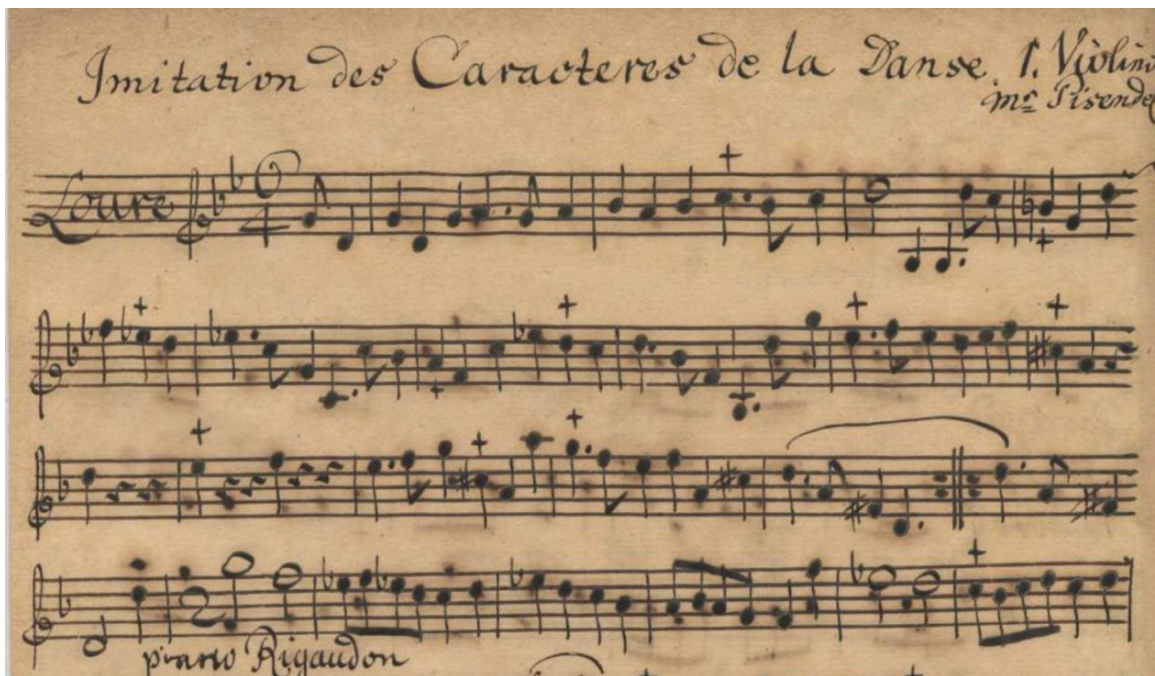 Imitation des Caracteres de la Danse. 1. Violino
Mr. Pisendel
Loure
piano Rigaudon